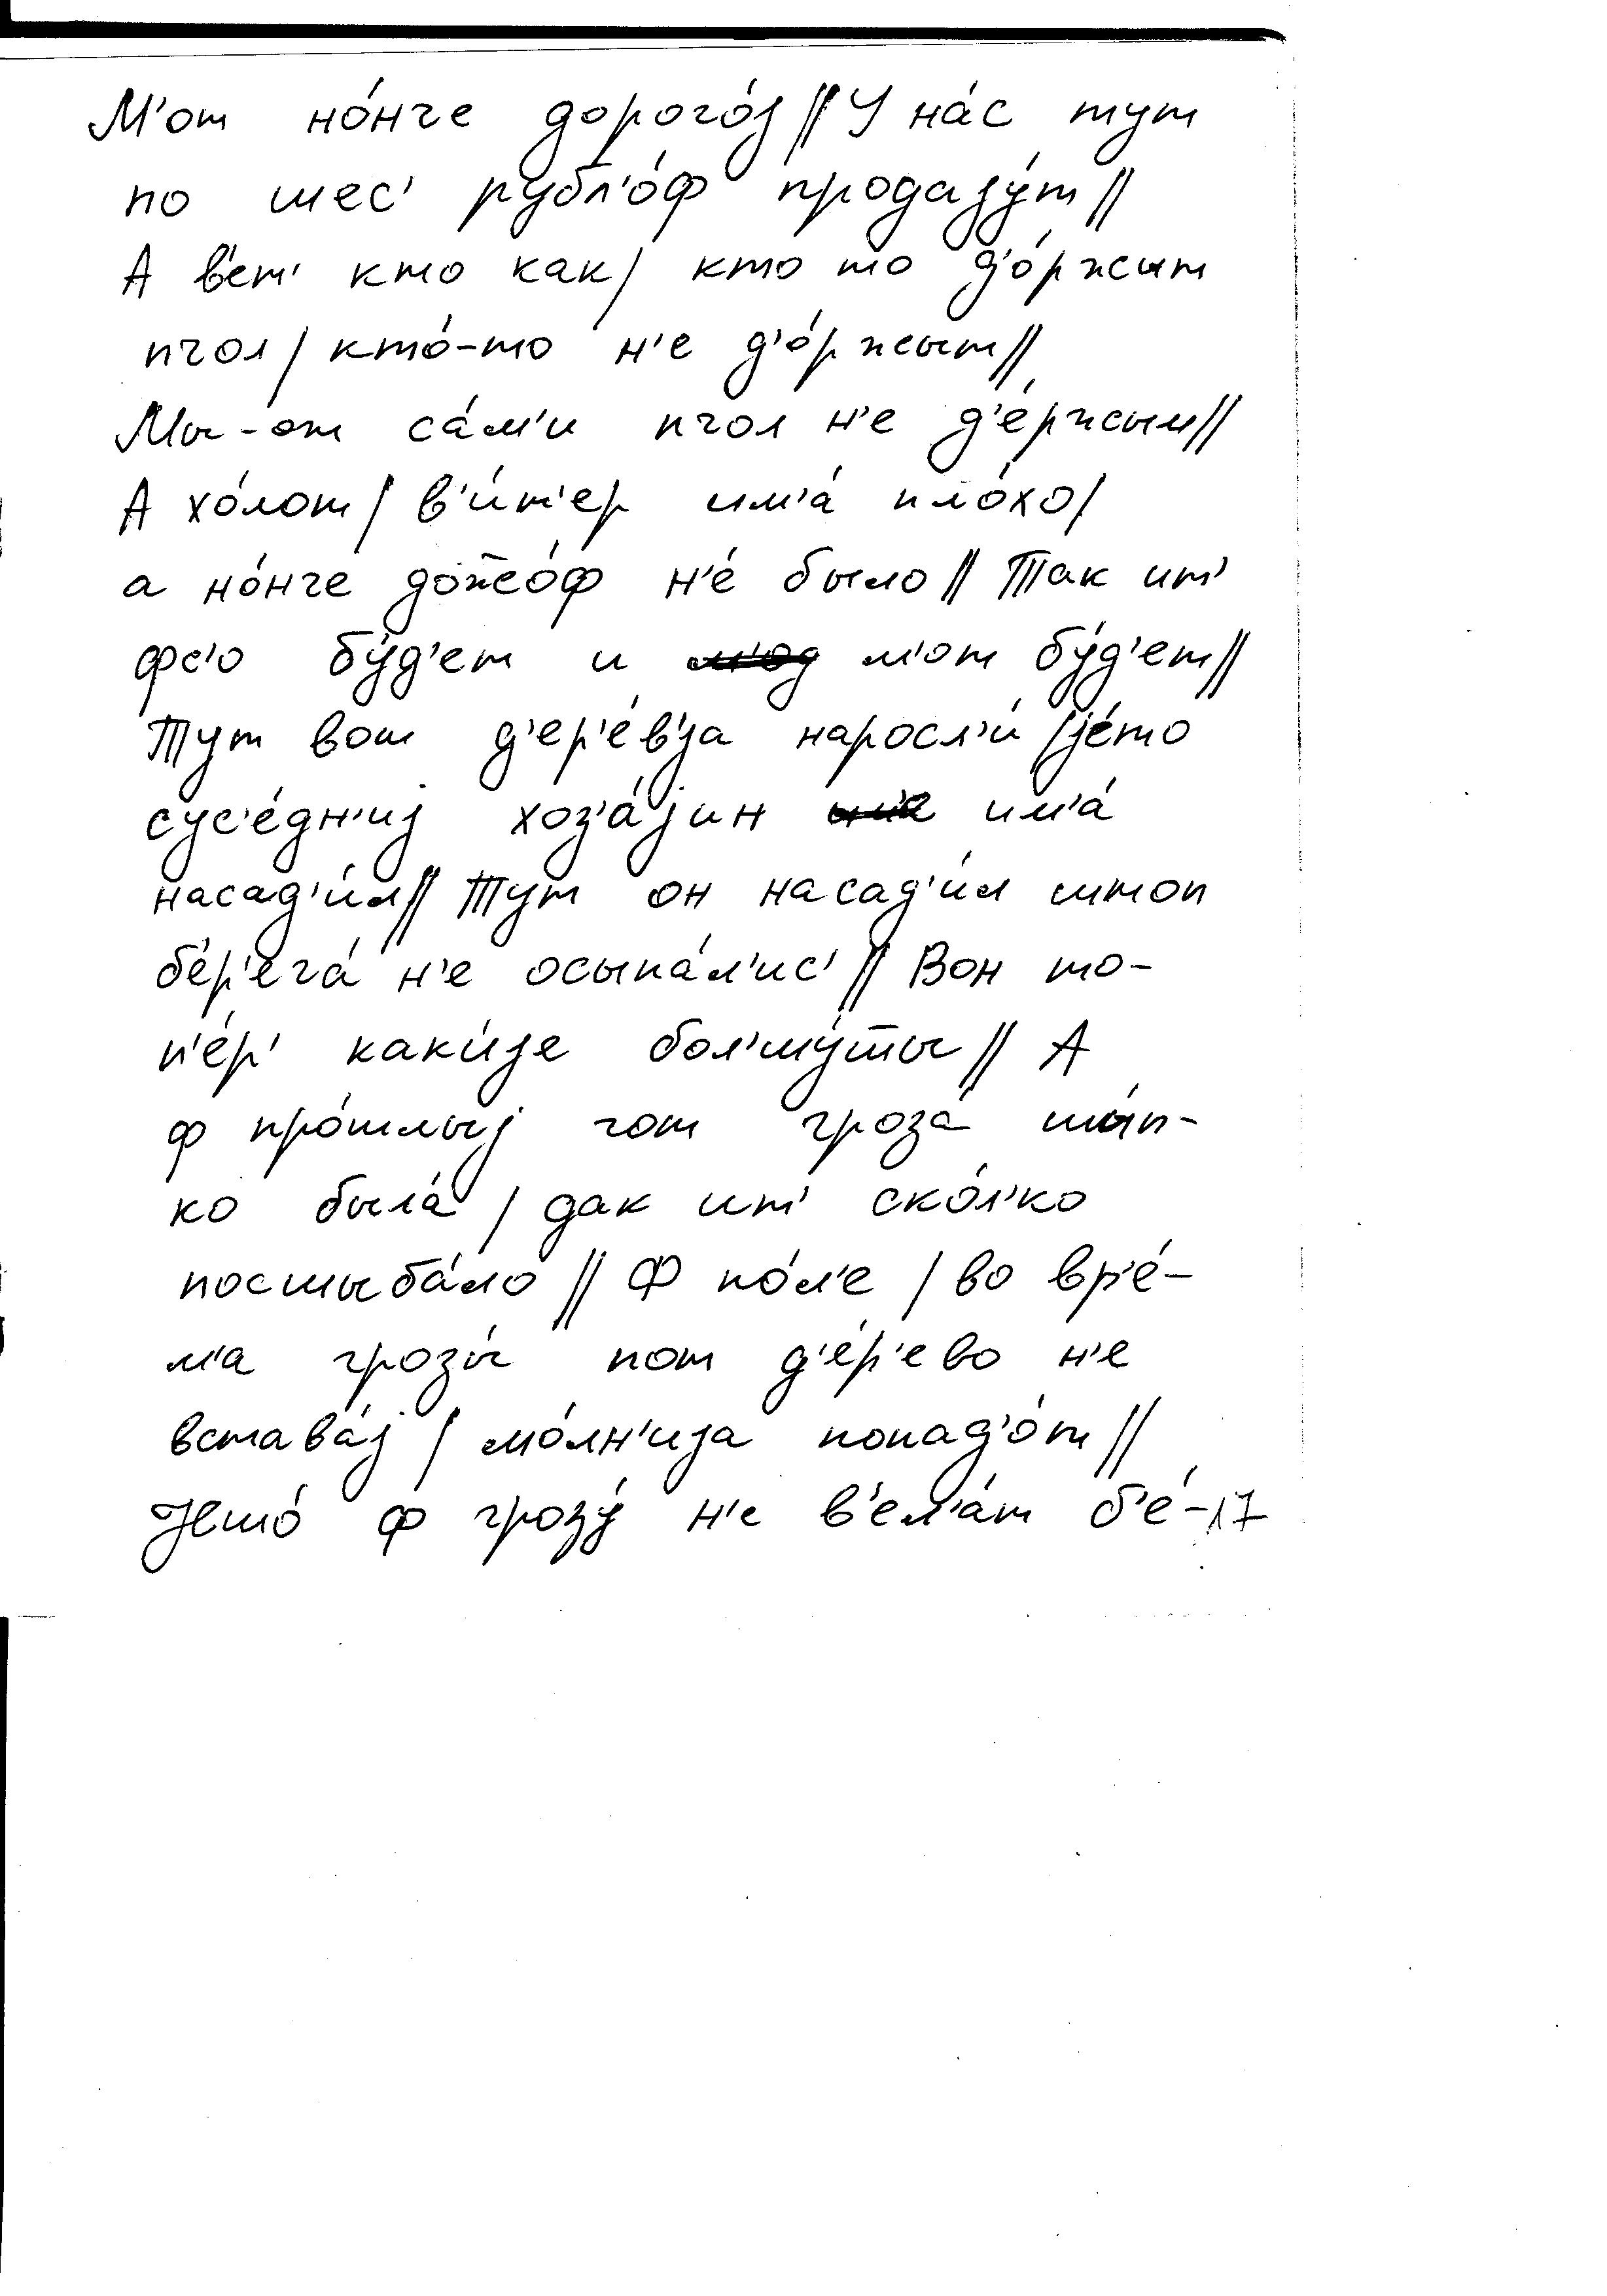 М'от но́нче дорого́j // У на́с тут
по шес' рубл'о́ф продаjу́т //
А в'ет' кто как / кто то д'о́ржыт
пчол / кто́-то н'е д'о́ржыт //
Мы-от са́м'и пчол н'е д'е́ржым //
А хо́лот / в'и́т'ер им'а́ пло́хо /
а но́нче дож̅о́ф н'е́ было // Так ит'
фс'о бу́д'ет и м'от бу́д'ет //
Тут вот д'ер'е́в'jа наросл'и́ / jе́то
сус'е́дн'иj хоз'а́jин им'а́
насад'и́л // Тут он насад'и́л штоп
б'ер'ега́ н'е осыпа́л'ис' // Вон то-
п'е́р' как'и́jе бол'шу́т̅ы // А
ф про́шлыj гот гроза́ шы́п-
ко была́ / дак ит' ско́л'ко
посшыба́ло // Ф по́л'е / во вр'е́-
м'а грозы́ пот д'е́р'ево н'е
встава́j / мо́лн'иjа попад'о́т //
Jешо́ ф грозу́ н'е в'ел'а́т б'е́-
17